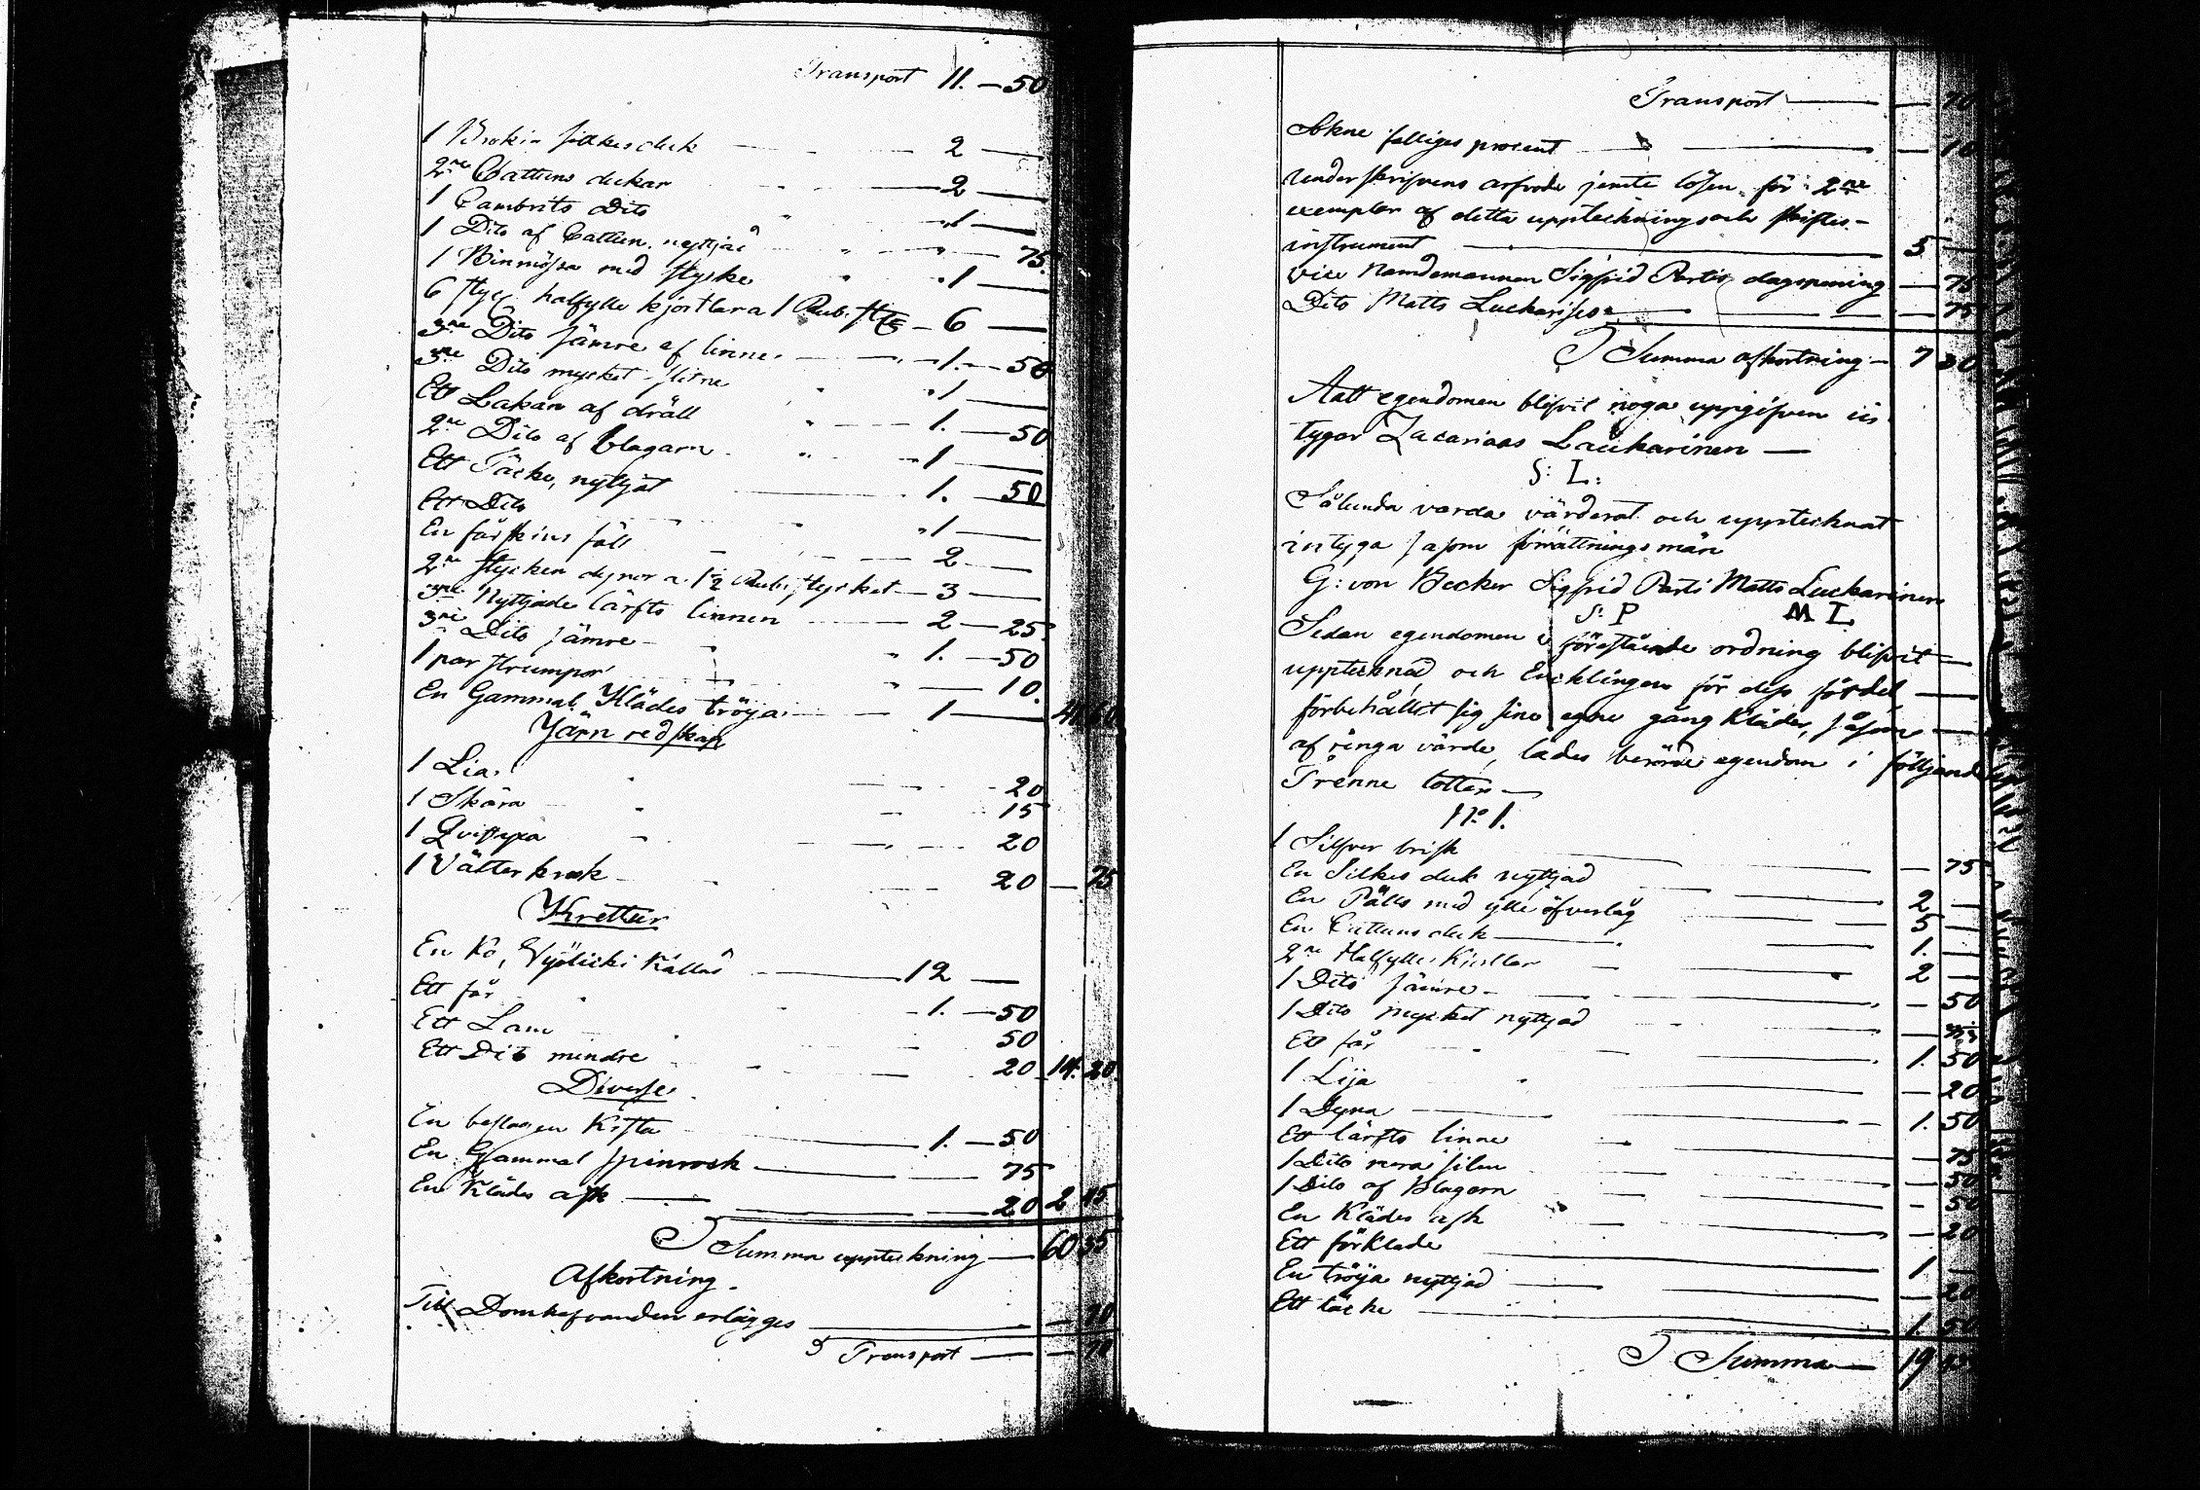 Transport 11. — 50
1 Brokin silkes duk — 2 —
2ne Cattuns dukar — 2 —
1 Cambrits Dito " 1 —
1 Dito af Cattun nyttjad " " 75.
1 Binmössa med stycke " 1 —
6 styck halfylle kjortlar a 1 Rub. st — 6 —
3ne Dito sämre af linne — 1. — 50
3ne Dito mycket slitne " 1 —
Ett Lakan af dräll 1. — 50
2ne Dito af blagarn " 1 —
Ett Täcke, nyttjat 1. 50
Ett Dito " 1 —
En fårskins fäll — 2 —
2ne stycken dynor a 1½ Rub. stycket — 3 —
3ne Nyttjade lärfts linnen 2 — 25.
3ne Dito sämre — 1. — 50
1 par strumpor " — 10.
En Gammal Klädes tröja — 1 — 41 60
Järn redskap
1 Lia. 20
1 Skära 15
1 Qvistyxa 20
1 Vätterkrok 20 — 75
Krettur
En Ko, Kallad — 12 —
Ett får 1. — 50
Ett Lam 50
Ett Dito mindre 20 14. 20.
Diverse
En beslagen Kista 1. — 50
En Gammal spinrock — 75
En Klädes ask — 20 2 45
Summa uppteckning — 60 35
Afkortning
Till Domhafvanden erlägges — 70
Transport — — 70
Transport — — 70
Sokne fattiges procent — — 10
underskrifvens arfvode jemte lösen för 2ne
exemplar af detta upptecknings och skiftes-
instrument — 5 —
vice Nämdemannen Sigfrid Partis dagspening — 75
Dito Matts Luckarises — — 75
Summa afkortning — 7 30
Aatt egendomen blifvit noga uppgifven in-
tygar Zacarias Lauckarinen —
S: L:
Sålunda varda värderat och upptecknat
intyga såsom förrättningsmän
G: von Becker Sigfrid Parti Matts Luckarinen
S: P M L
Sedan egendomen i förestående ordning blifvit —
upptecknad, och Encklingen för dess fördel —
förbehållit sig sine egne gång Kläder, såsom —
af ringa värde, lades berörde egendom i följande
Trenne lotter —
No 1.
1 Silfver brisk — 75
En Silkes duk nyttjad 2 —
En Pälts med ylle öfverlag 5 —
En Cattuns duk — 1. —
2ne Halfylle Kjortlar 2 —
1 Dito sämre — 50
1 Dito mycket nyttjad —
Ett får 1. 50
1 Lija — 20
1 Dyna — 1. 50
Ett lärfts linne — 75
1 Dito — 50
1 Dito af Blagarn — 50
En Klädes ask — 20
Ett förklade 1 —
En tröja nyttjad — 20
Ett täcke — 1. 50
Summa — 19